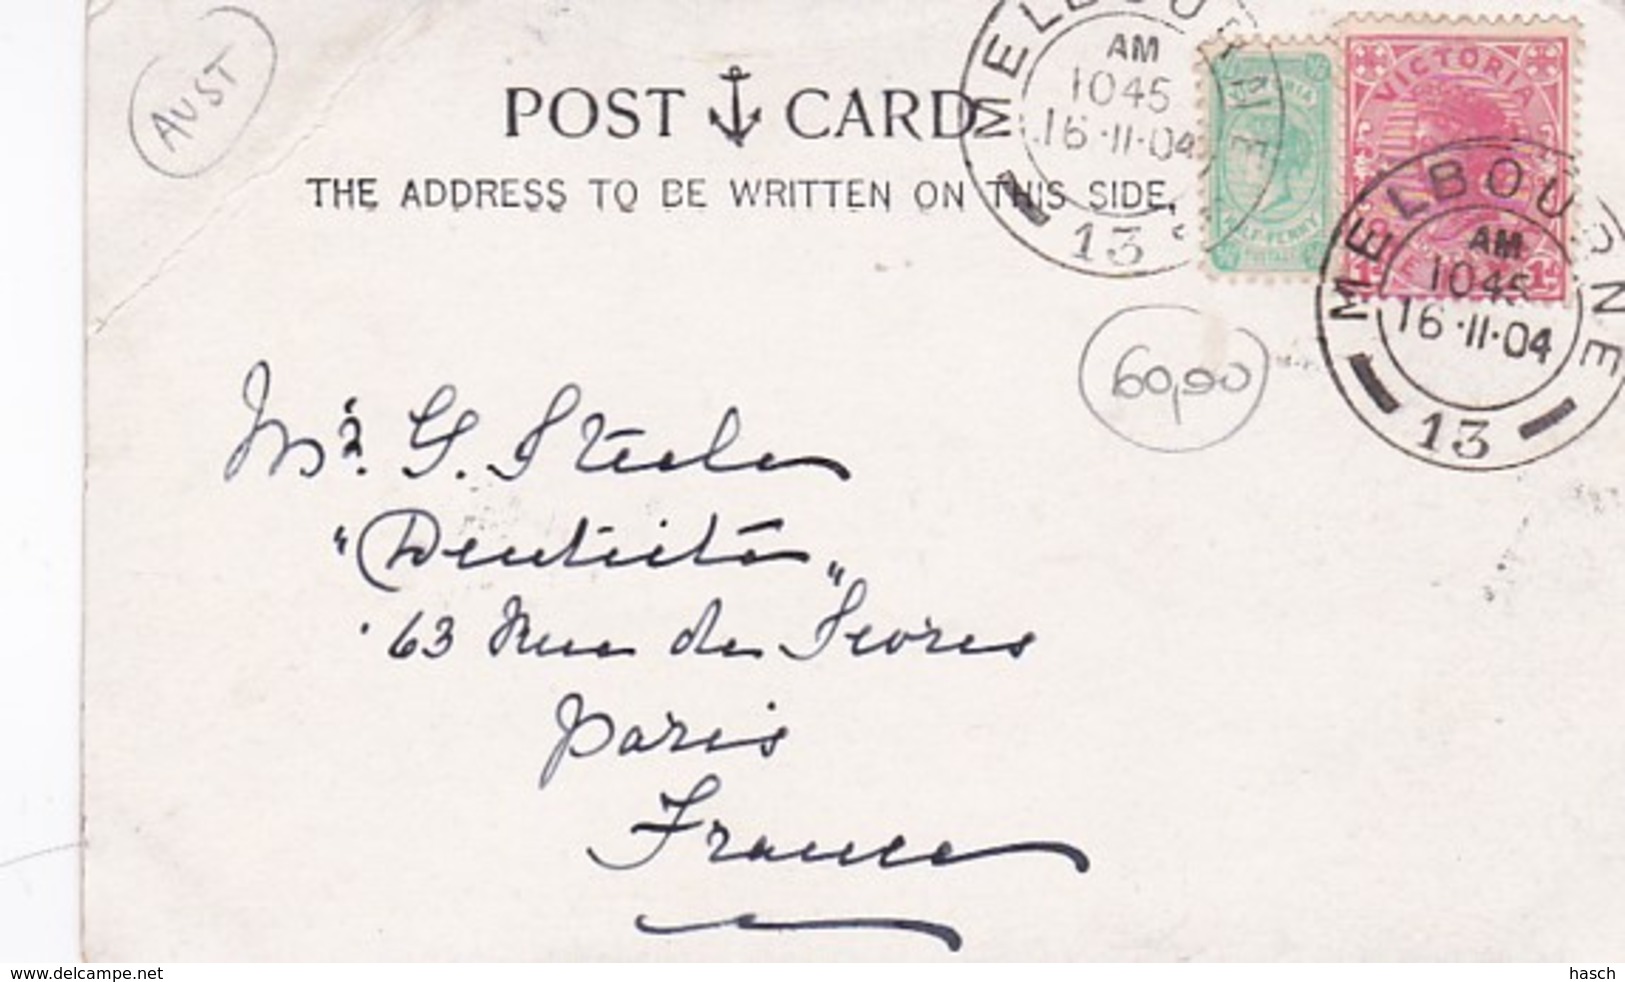 AUST
POST CARD
THE ADDRESS TO BE WRITTEN ON THIS SIDE.
MELBOURNE
AM
1045
16·11·04
13
HALF-PENNY
VICTORIA
MELBOURNE
AM
1045
16·11·04
13
1d 1d
60,00
Mr. G. Steele
63 Rue de Sevres
Paris
France
www.delcampe.net
hasch